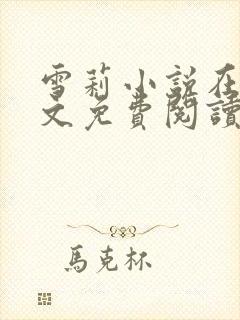 雪莉小説在
文免費閱讀
馬克杯